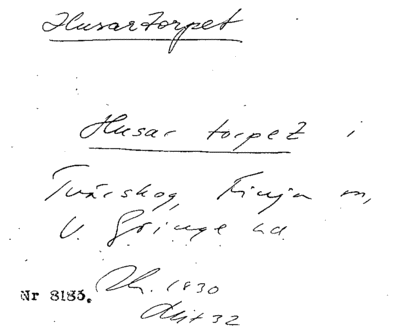 Husartorpet
Husar torpet i
Tvärskog, Finja sn,
V. Göinge hd
Nr 8185. Jhr. 1830
Akt 32